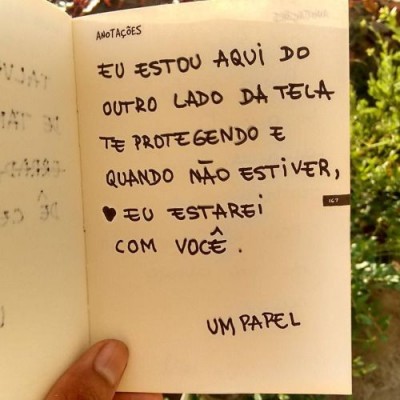 ANOTAÇÕES
EU ESTOU AQUI DO
OUTRO LADO DA TELA
TE PROTEGENDO E
QUANDO NÃO ESTIVER,
♥ EU ESTAREI
COM VOCÊ.
167
UM PAPEL